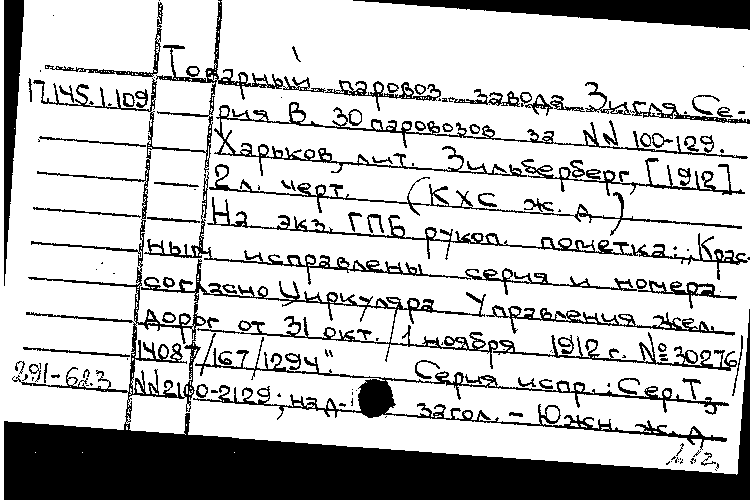 Товарный паровоз завода Зигля. Се-
17.145.1.109
рия В. 30 паровозов за NN 100-129.
Харьков, лит. Зильберберг, [1912].
2 л. черт. (КХС ж. д.)
На экз. ГПБ рукоп. пометка: „Крас-
ным исправлены серия и номера
согласно Циркуляра Управления жел.
дорог от 31 окт./1 ноября 1912 г. № 30276/
14087/167/1294". Серия испр.: Сер. Т,
291-623
NN 2100-2129; над- загол. - Южн. ж. д.